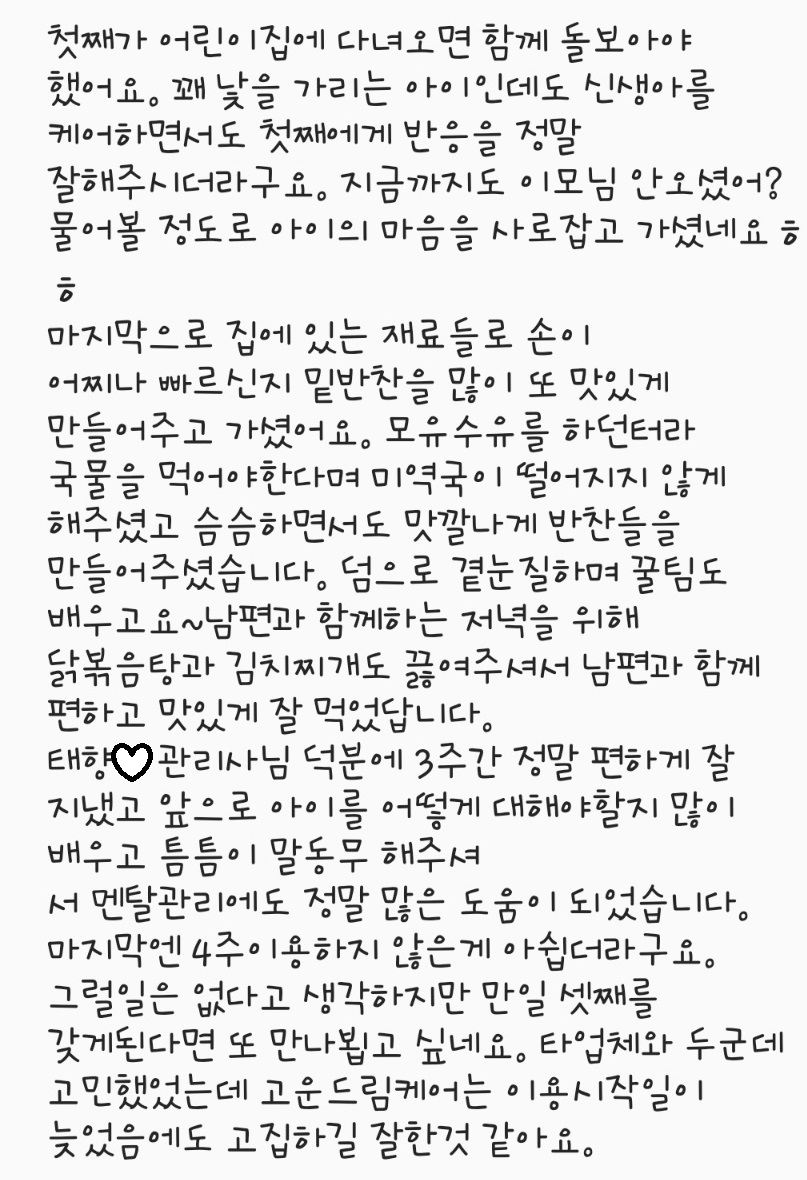 첫째가 어린이집에 다녀오면 함께 돌보아야
했어요. 꽤 낯을 가리는 아이인데도 신생아를
케어하면서도 첫째에게 반응을 정말
잘해주시더라구요. 지금까지도 이모님 안오셨어?
물어볼 정도로 아이의 마음을 사로잡고 가셨네요 ㅎ
ㅎ
마지막으로 집에 있는 재료들로 손이
어찌나 빠르신지 밑반찬을 많이 또 맛있게
만들어주고 가셨어요. 모유수유를 하던터라
국물을 먹어야한다며 미역국이 떨어지지 않게
해주셨고 슴슴하면서도 맛깔나게 반찬들을
만들어주셨습니다. 덤으로 곁눈질하며 꿀팁도
배우고요~남편과 함께하는 저녁을 위해
닭볶음탕과 김치찌개도 끓여주셔서 남편과 함께
편하고 맛있게 잘 먹었답니다.
태향♡관리사님 덕분에 3주간 정말 편하게 잘
지냈고 앞으로 아이를 어떻게 대해야할지 많이
배우고 틈틈이 말동무 해주셔
서 멘탈관리에도 정말 많은 도움이 되었습니다.
마지막엔 4주이용하지 않은게 아쉽더라구요.
그럴일은 없다고 생각하지만 만일 셋째를
갖게된다면 또 만나뵙고 싶네요. 타업체와 두군데
고민했었는데 고운드림케어는 이용시작일이
늦었음에도 고집하길 잘한것 같아요.